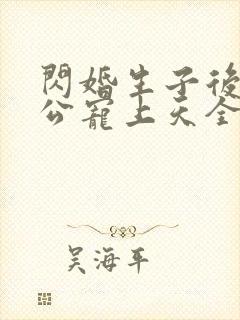 閃婚生子後
公寵上天全
吴海平